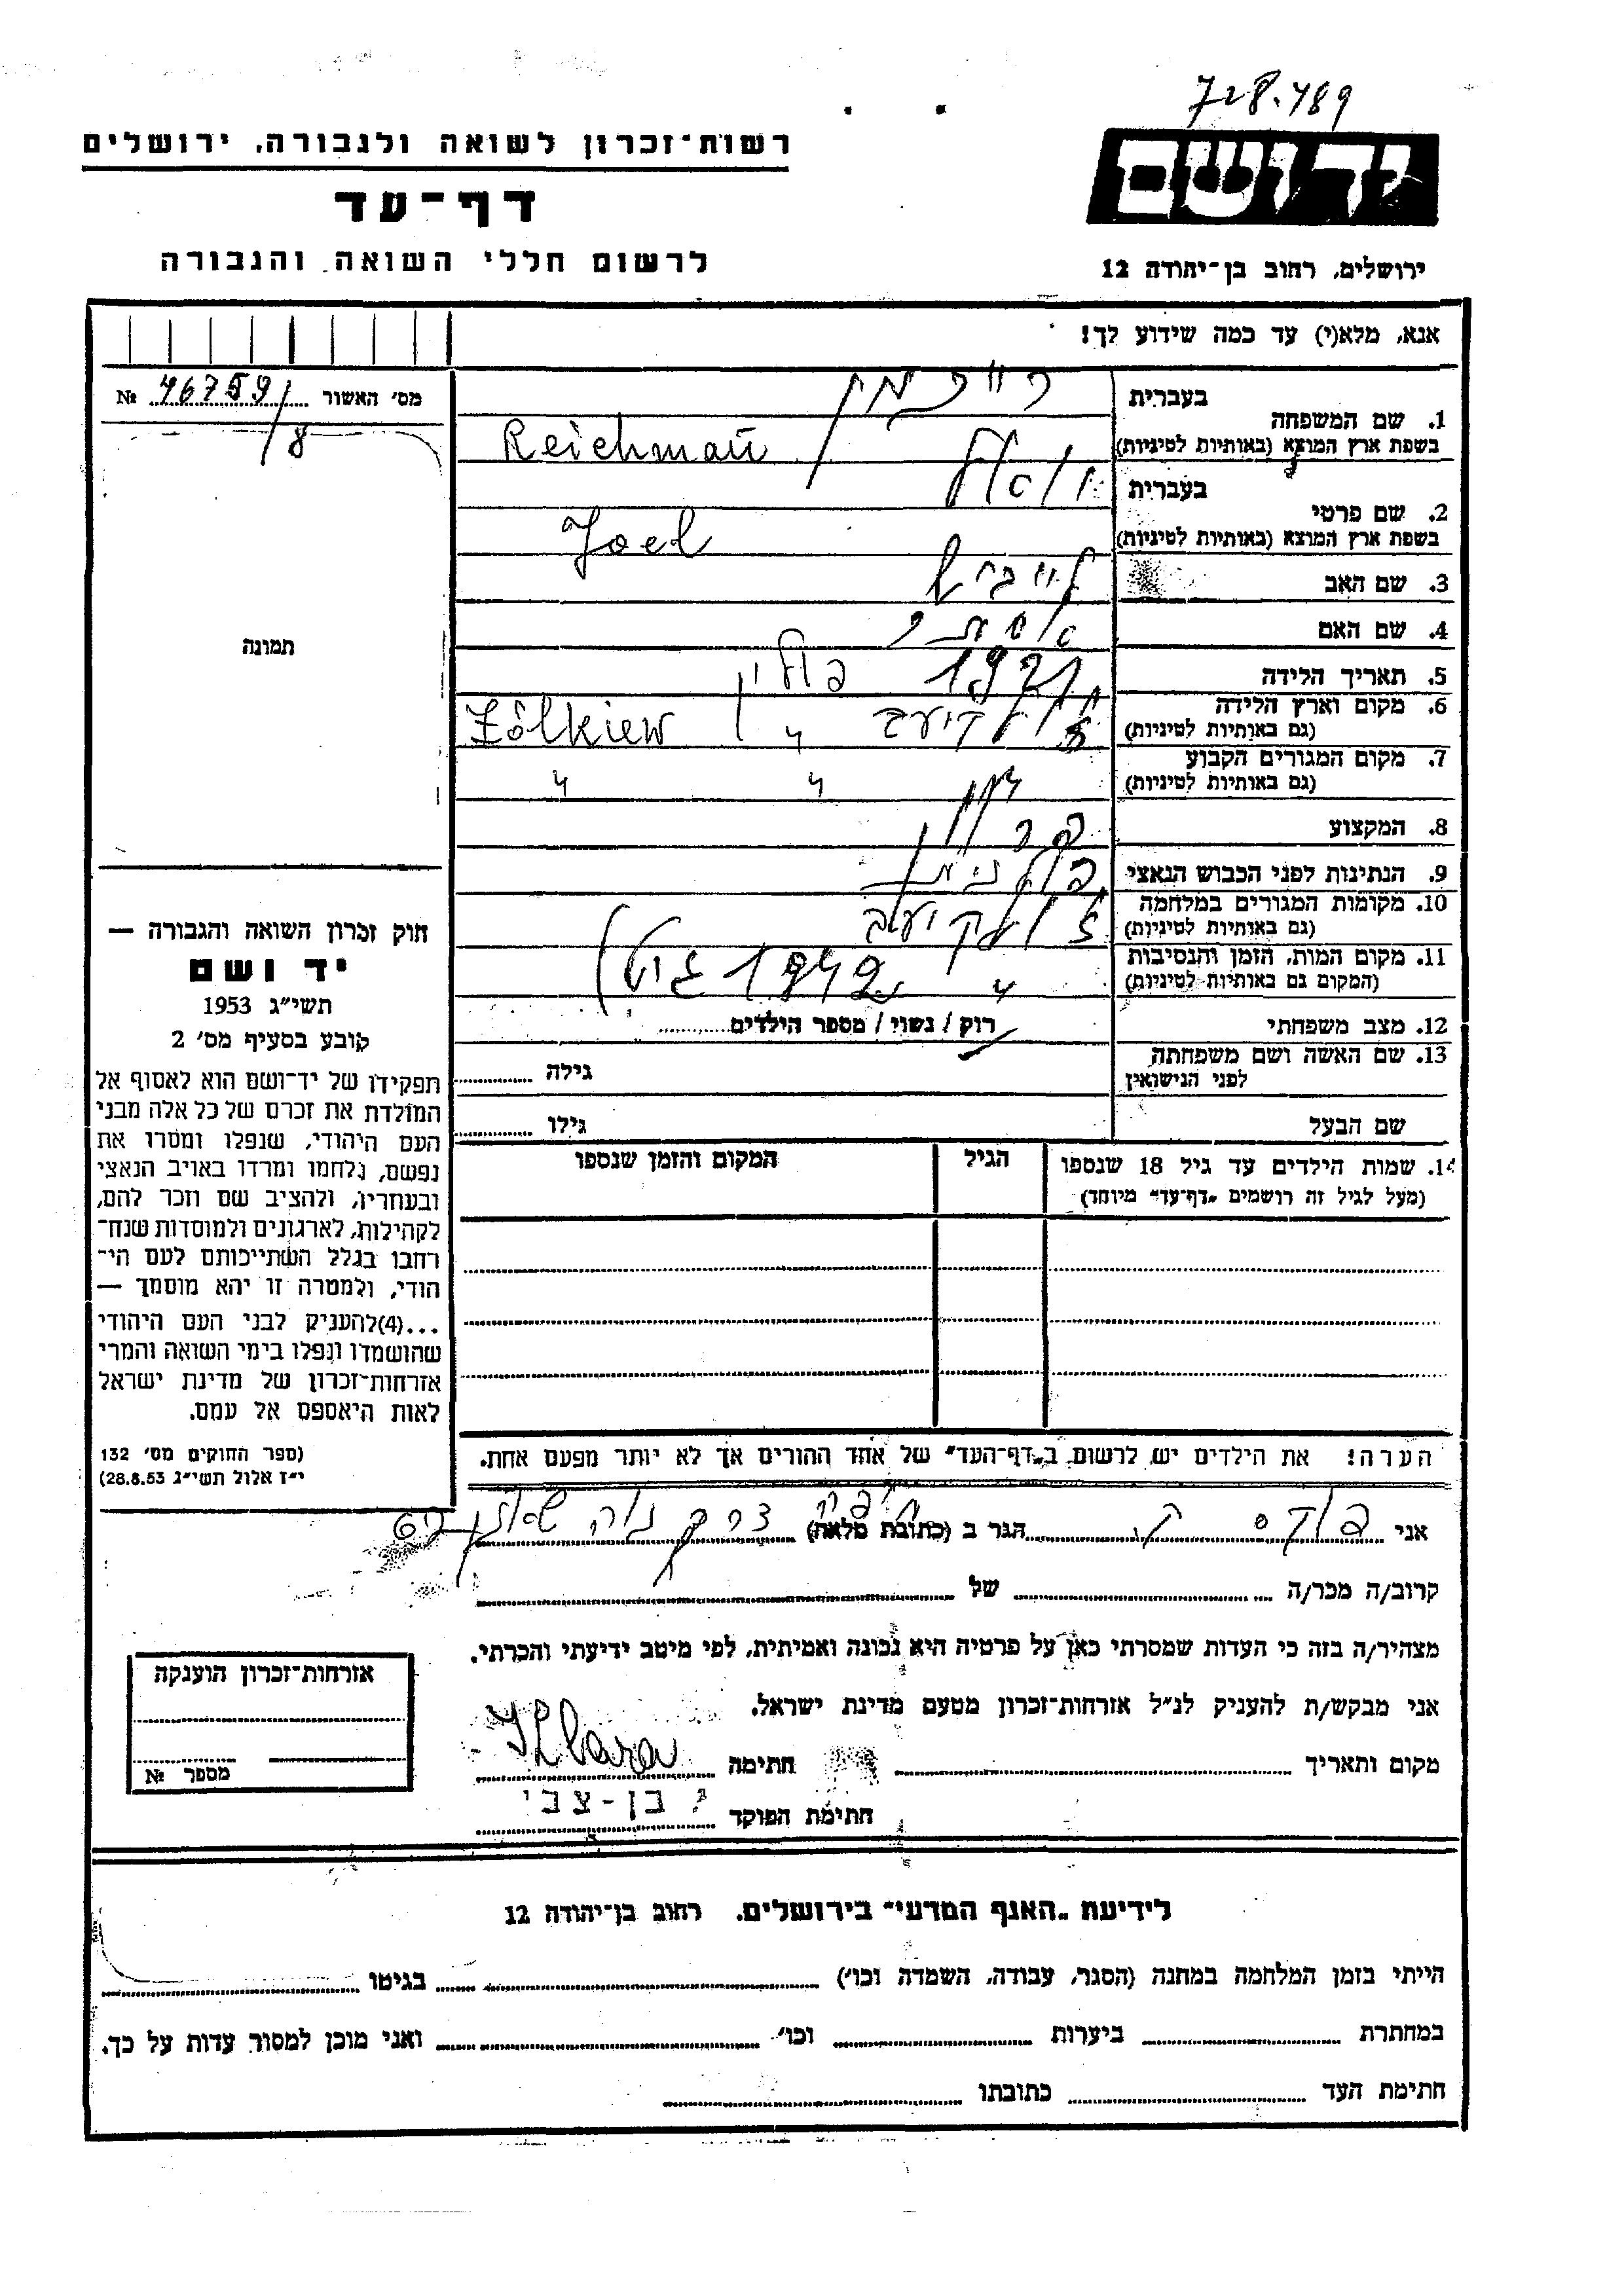 728.489
רשות־זכרון לשואה ולגבורה, ירושלים
יד ושם
דף־עד
לרשום חללי השואה והגבורה
ירושלים, רחוב בן־יהודה 12
אנא, מלא(י) עד כמה שידוע לך!
מס׳ האשור № 46759/8
1. שם המשפחה
בעברית רייכמן
בשפת ארץ המוצא (באותיות לטיניות) Reichman
2. שם פרטי
בעברית
בשפת ארץ המוצא (באותיות לטיניות) Joel
3. שם האב לייביש
4. שם האם
5. תאריך הלידה 1921
6. מקום וארץ הלידה (גם באותיות לטיניות) זולקיעב פולין Zólkiew
7. מקום המגורים הקבוע (גם באותיות לטיניות) " " "
8. המקצוע
9. הנתינות לפני הכבוש הנאצי פולנית
10. מקומות המגורים במלחמה (גם באותיות לטיניות) זולקיעב
11. מקום המות, הזמן והנסיבות (המקום גם באותיות לטיניות) " 1942
12. מצב משפחתי רוק / נשוי / מספר הילדים
13. שם האשה ושם משפחתה לפני הנישואין גילה
שם הבעל גילו
14. שמות הילדים עד גיל 18 שנספו (מעל לגיל זה רושמים „דף־עד״ מיוחד)
הגיל
המקום והזמן שנספו
הערה! את הילדים יש לרשום ב„דף־העד״ של אחד ההורים אך לא יותר מפעם אחת.
תמונה
חוק זכרון השואה והגבורה —
יד ושם
תשי״ג 1953
קובע בסעיף מס׳ 2
תפקידו של יד־ושם הוא לאסוף אל
המולדת את זכרם של כל אלה מבני
העם היהודי, שנפלו ומסרו את
נפשם, נלחמו ומרדו באויב הנאצי
ובעוזריו, ולהציב שם וזכר להם,
לקהילות, לארגונים ולמוסדות שנח־
רבו בגלל השתייכותם לעם הי־
הודי, ולמטרה זו יהא מוסמך —
...(4)להעניק לבני העם היהודי
שהושמדו ונפלו בימי השואה והמרי
אזרחות־זכרון של מדינת ישראל
לאות היאספם אל עמם.
(ספר החוקים מס׳ 132
י״ז אלול תשי״ג 28.8.53)
אני הגר ב (כתובת מלאה) חיפה דרך נוה שאנן
קרוב/ה מכר/ה של
מצהיר/ה בזה כי העדות שמסרתי כאן על פרטיה היא נכונה ואמיתית, לפי מיטב ידיעתי והכרתי.
אני מבקש/ת להעניק לנ״ל אזרחות־זכרון מטעם מדינת ישראל.
מקום ותאריך חתימה
חתימת הפוקד בן-צבי
אזרחות־זכרון הוענקה
מספר №
לידיעת „האגף המדעי״ בירושלים. רחוב בן־יהודה 12
הייתי בזמן המלחמה במחנה (הסגר, עבודה, השמדה וכו׳) בגיטו
במחתרת ביערות וכו׳ ואני מוכן למסור עדות על כך.
חתימת העד כתובתו